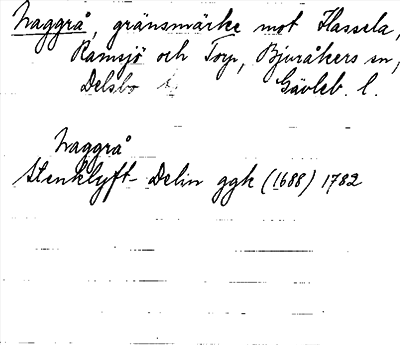 Naggrå, gränsmärke mot Hassela,
Ramsjö och Torp, Bjuråkers sn,
Delsbo t. Gävleb. l.
Naggrå
Stenklyft- Delin ggh (1688) 1782